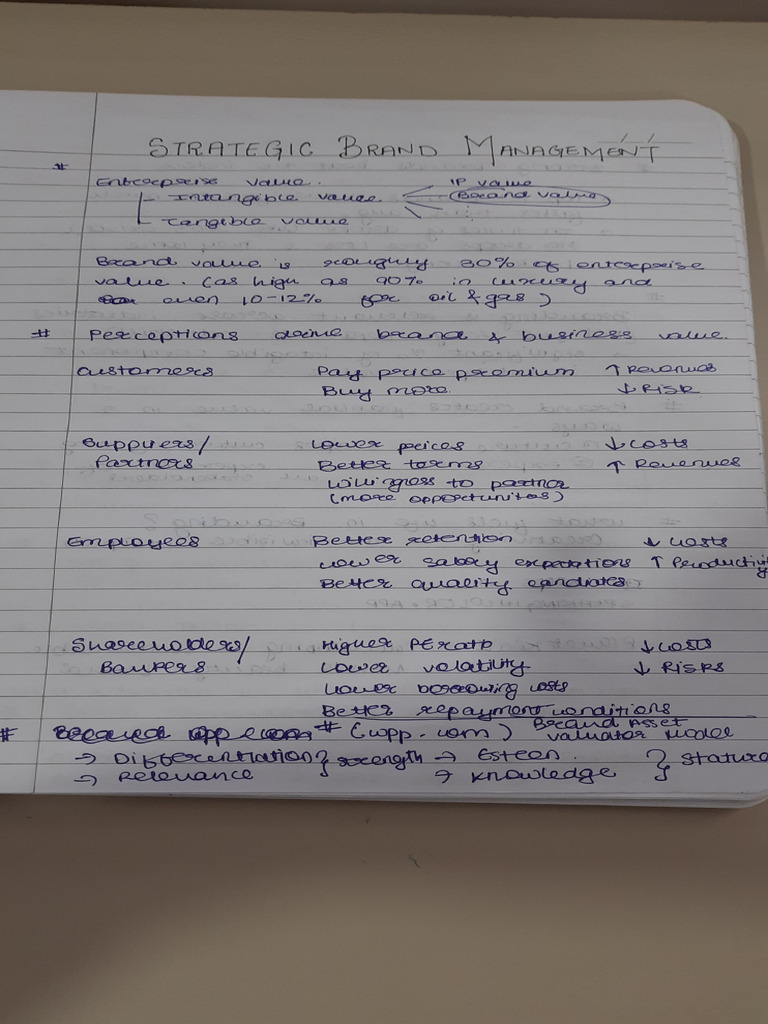 STRATEGIC BRAND MANAGEMENT
#
Enterprise value.
Intangible value IP value
Brand value
Tangible value
Brand value is roughly 30% of enterprise
value. (as high as 90% in luxury and
even 10-12% for oil & gas)
# Perceptions drive brand & business value.
Customers Pay price premium ↑ Revenues
Buy more ↓ Risk
Suppliers/ Lower prices ↓ Costs
Partners Better terms ↑ Revenues
Willingness to partner
(more opportunites)
Employees Better retention ↓ Costs
Lower salary expectations ↑ Productivity
Better quality candidates
Shareholders/ Higher PE ratio ↓ Costs
Bankers Lower volatility ↓ Risks
Lower borrowing costs
Better repayment conditions
# # (wpp.com) Brand Asset
Valuator Model
→ Differentiation } Strength → Esteen. } Stature
→ Relevance → Knowledge